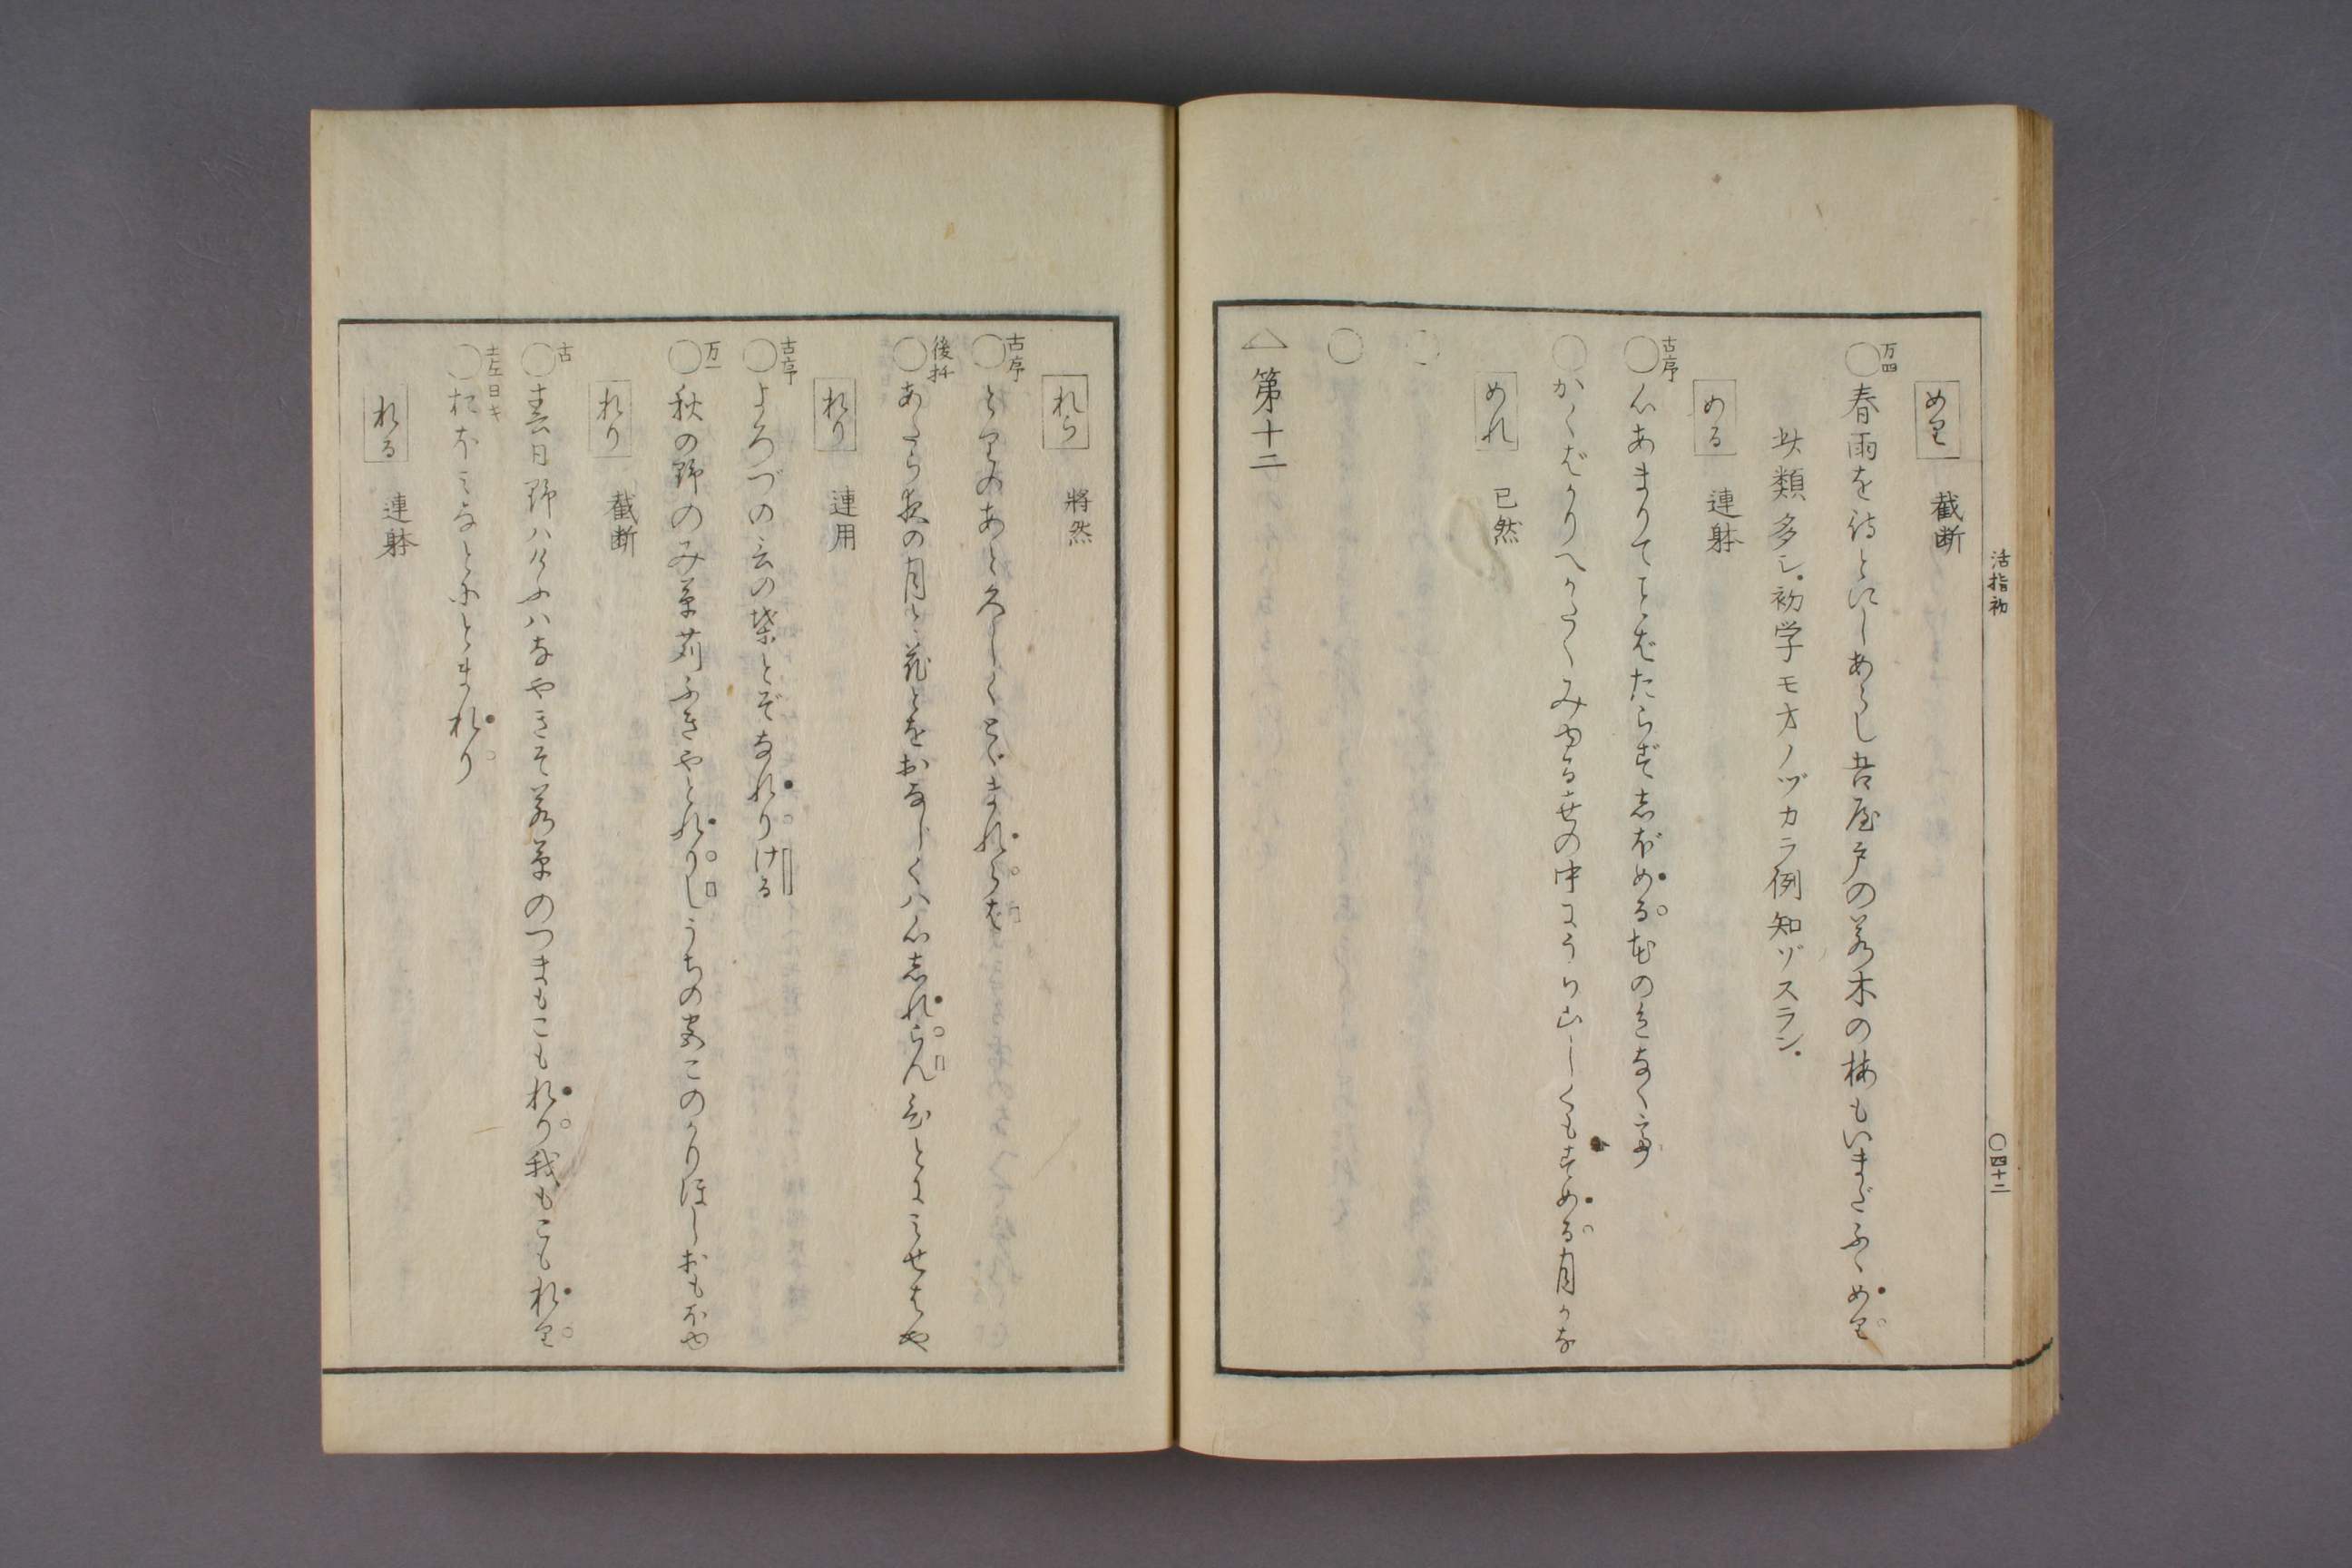 活指初
〇四十二
めり 截断
万四
〇春雨を待とにしあらし吾屋戸の若木の梅もいまだふゝめり
此類多シ初学モオノヅカラ例知ヅスラン
める 連躰
古序
〇心あまりてことばたらずしぼめる花のいろなくて
〇かくばかりへがたくみゆる世の中にうら山しくもすめる月かな
めれ 已然
〇
〇
△第十二
れら 将然
古序
〇とりのあと久しくとゞまれらば
後拾
〇あたら夜の月と花とをおなじくハ心しれらん人にみせばや
れり 連用
古序
〇よろづの言の葉とぞなれりける
万一
〇秋の野のみ草苅ふきやとれりしうちの宮このかりほしおもほゆ
れり 截断
古
〇春日野ハけふハなやきそ若草のつまもこもれり我もこもれり
土左日キ
〇おなじみなとにとまれり
れる 連躰